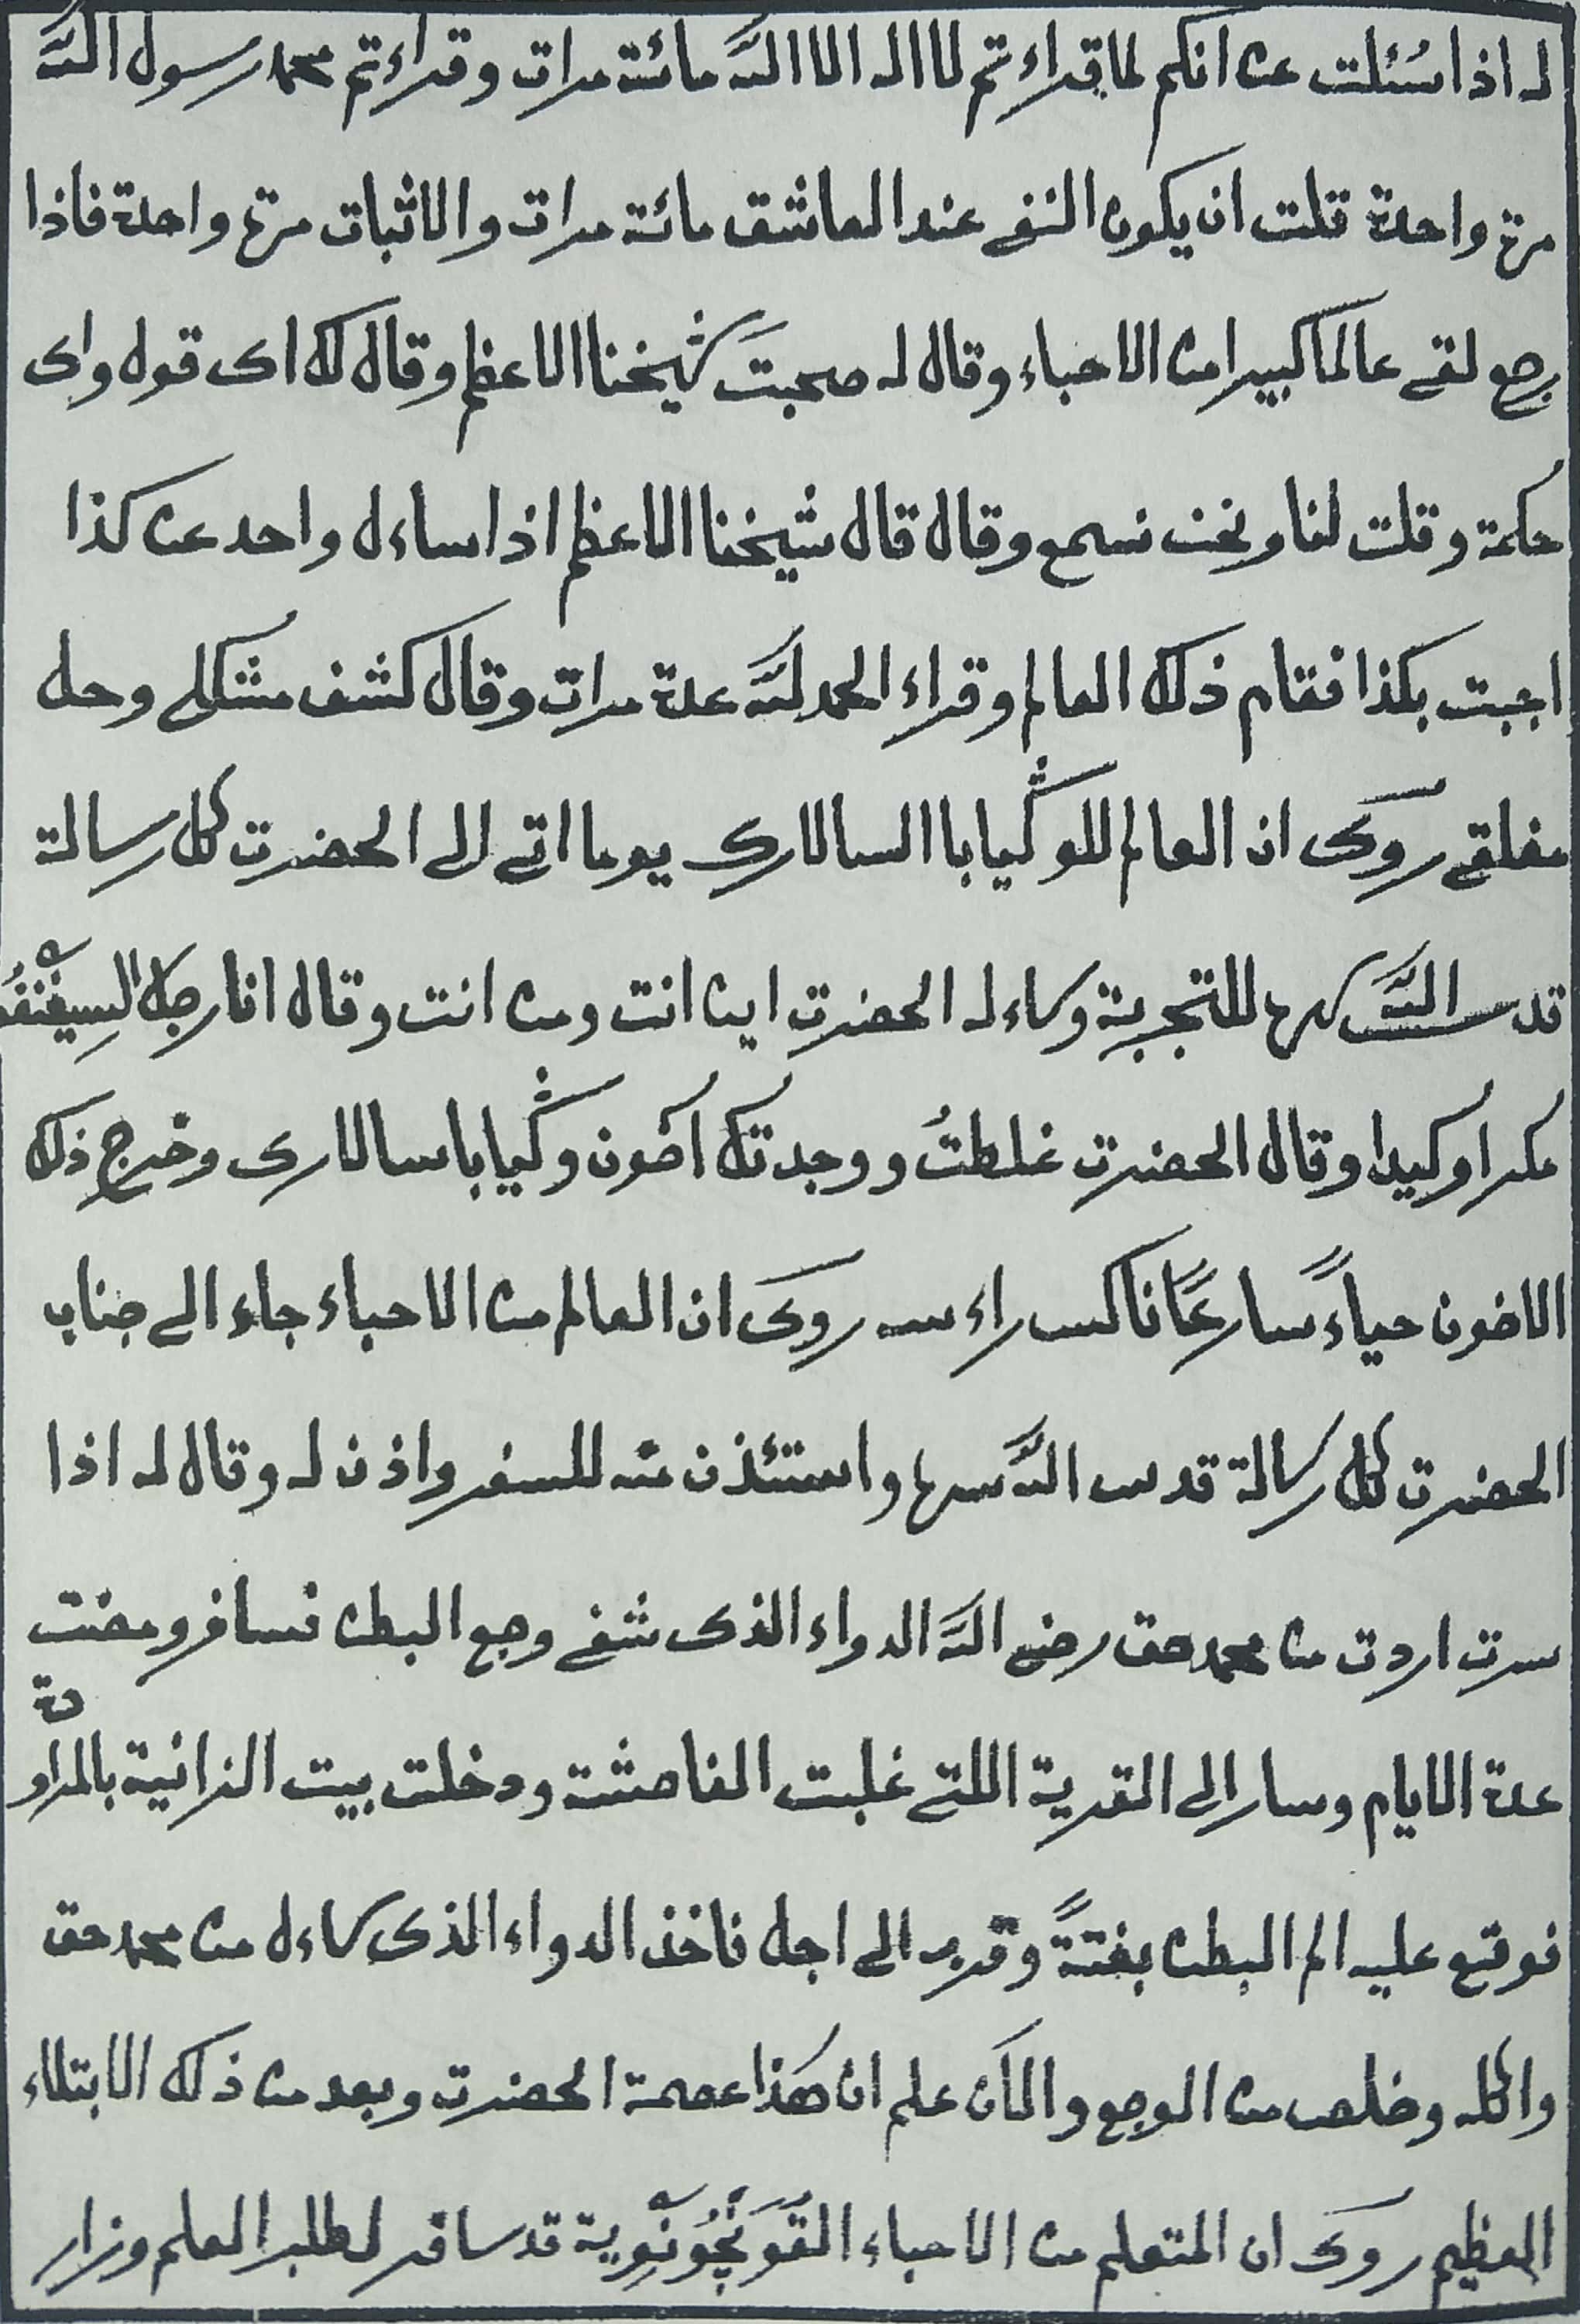 له اذا سُئلت عن انكم لما قراءتم لا اله الا الله مائة مرات وقراءتم محمد رسول الله
مرة واحدة قلت ان يكون النفى عند العاشق مائة مرات والاثبات مرة واحدة فاذا
رجع لقى عالما كبيرا من الاحباء وقال له صحبتَ شيخنا الاعظم وقال لك اى قول واى
حكمة وقلت لنا ونحن نسمع وقال قال شيخنا الاعظم اذا ساءل واحد عن كذا
اجبت بكذا فقام ذلك العالم وقراء الحمد لله عدة مرات وقال كشف مشكلى وحل
مغلقى روى ان العالم للوكيابا السالارى يوما اتى الى الحضرت كل رسالة
قدس الله سره للتجربة وساء له الحضرت اين انت ومن انت وقال انا رجل
مكرا وكيدا وقال الحضرت غلطتُ ووجدتك آخون وكيابا سالارى وخرج ذلك
الاخون حياءً سارعًا ناكس راءسه روى ان العالم من الاحباء جاء الى جناب
الحضرت كل رسالة قدس الله سره واستئذن منه للسفر واذن له وقال له اذا
سرت اردت من محمد حق رضى الله الدواء الذى شفى وجع البطن فسافر ومضت
عدة الايام وسار الى القرية اللتى غلبت الفاحشة ودخلت بيت الزانية بالمراودة
فوقع عليه الم البطن بغتةً وقرب الى اجل فاخذ الدواء الذى ساءل من محمد حق
واكله وخلص من الوجع والآن علم ان هذا عصمة الحضرت وبعد من ذلك الابتلاء
العظيم روى ان المتعلم من الاحباء قد سافر لطلب العلم وزار